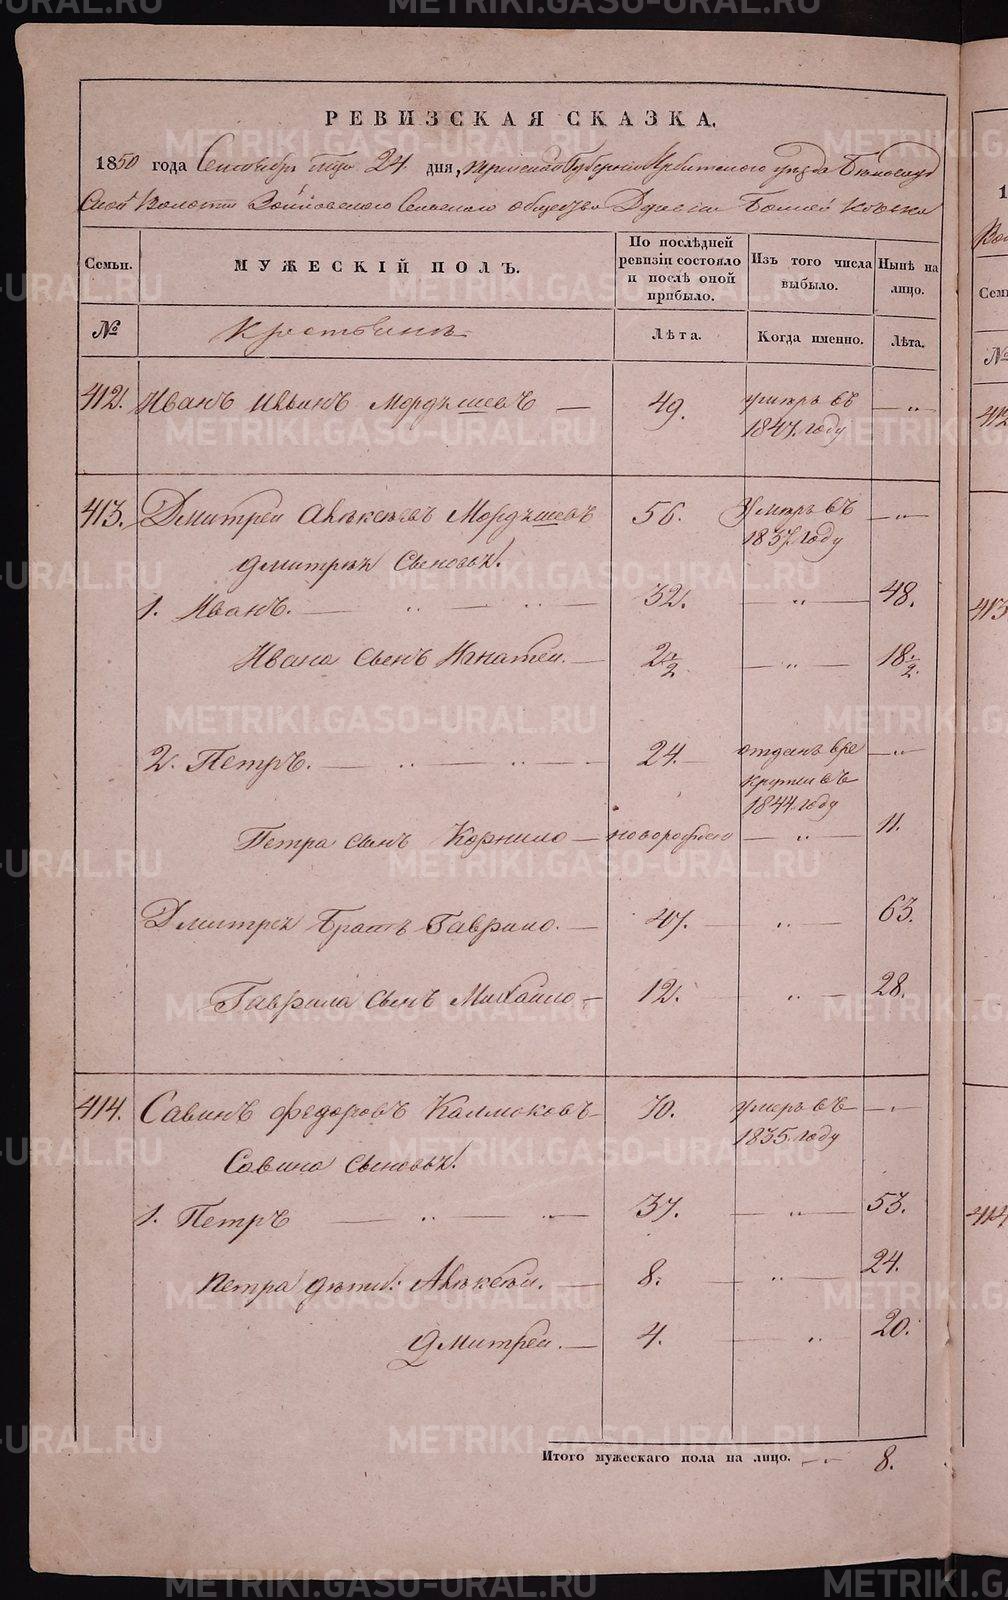 РЕВИЗСКАЯ СКАЗКА.
1850 года Сентября 24 дня, Пермской Губернии Ирбитского уезда
Волости Сельскаго общества
Семьи. МУЖЕСКІЙ ПОЛЪ. По послѣдней ревизіи состояло и послѣ оной прибыло. Изъ того числа выбыло. Нынѣ на лицо.
№ Крестьянъ Лѣта. Когда именно. Лѣта.
412. Иванъ Ильинъ Мордяшевъ — 49. умеръ въ 1847. году — „ —
413. Дмитрей Алексеевъ Мордяшевъ 56. Умеръ въ 1837. году — „ —
Дмитрея Сыновья:
1. Иванъ. — „ — „ — 32. — „ — 48.
Ивана Сынъ Игнатей. — 2 1/2 — „ — 18 1/2.
2. Петръ. — „ — „ — 24. — отданъ въ рекруты въ 1844. году — „ —
Петра сынъ Корнило — новорожден — „ — 11.
Дмитрея Братъ Гаврило. — 47. — „ — 63.
Гаврила сынъ Михайло — 12. — „ — 28.
414. Савинъ Федоровъ Калмаковъ — 70. умеръ въ 1835. году — „ —
Савина сыновья:
1. Петръ — „ — „ — 37. — „ — 53.
Петра дети: Алексей. — 8. — „ — 24.
Дмитрей. — 4. — „ — 20.
Итого мужескаго пола на лицо. — — 8.
METRIKI.GASO-URAL.RU